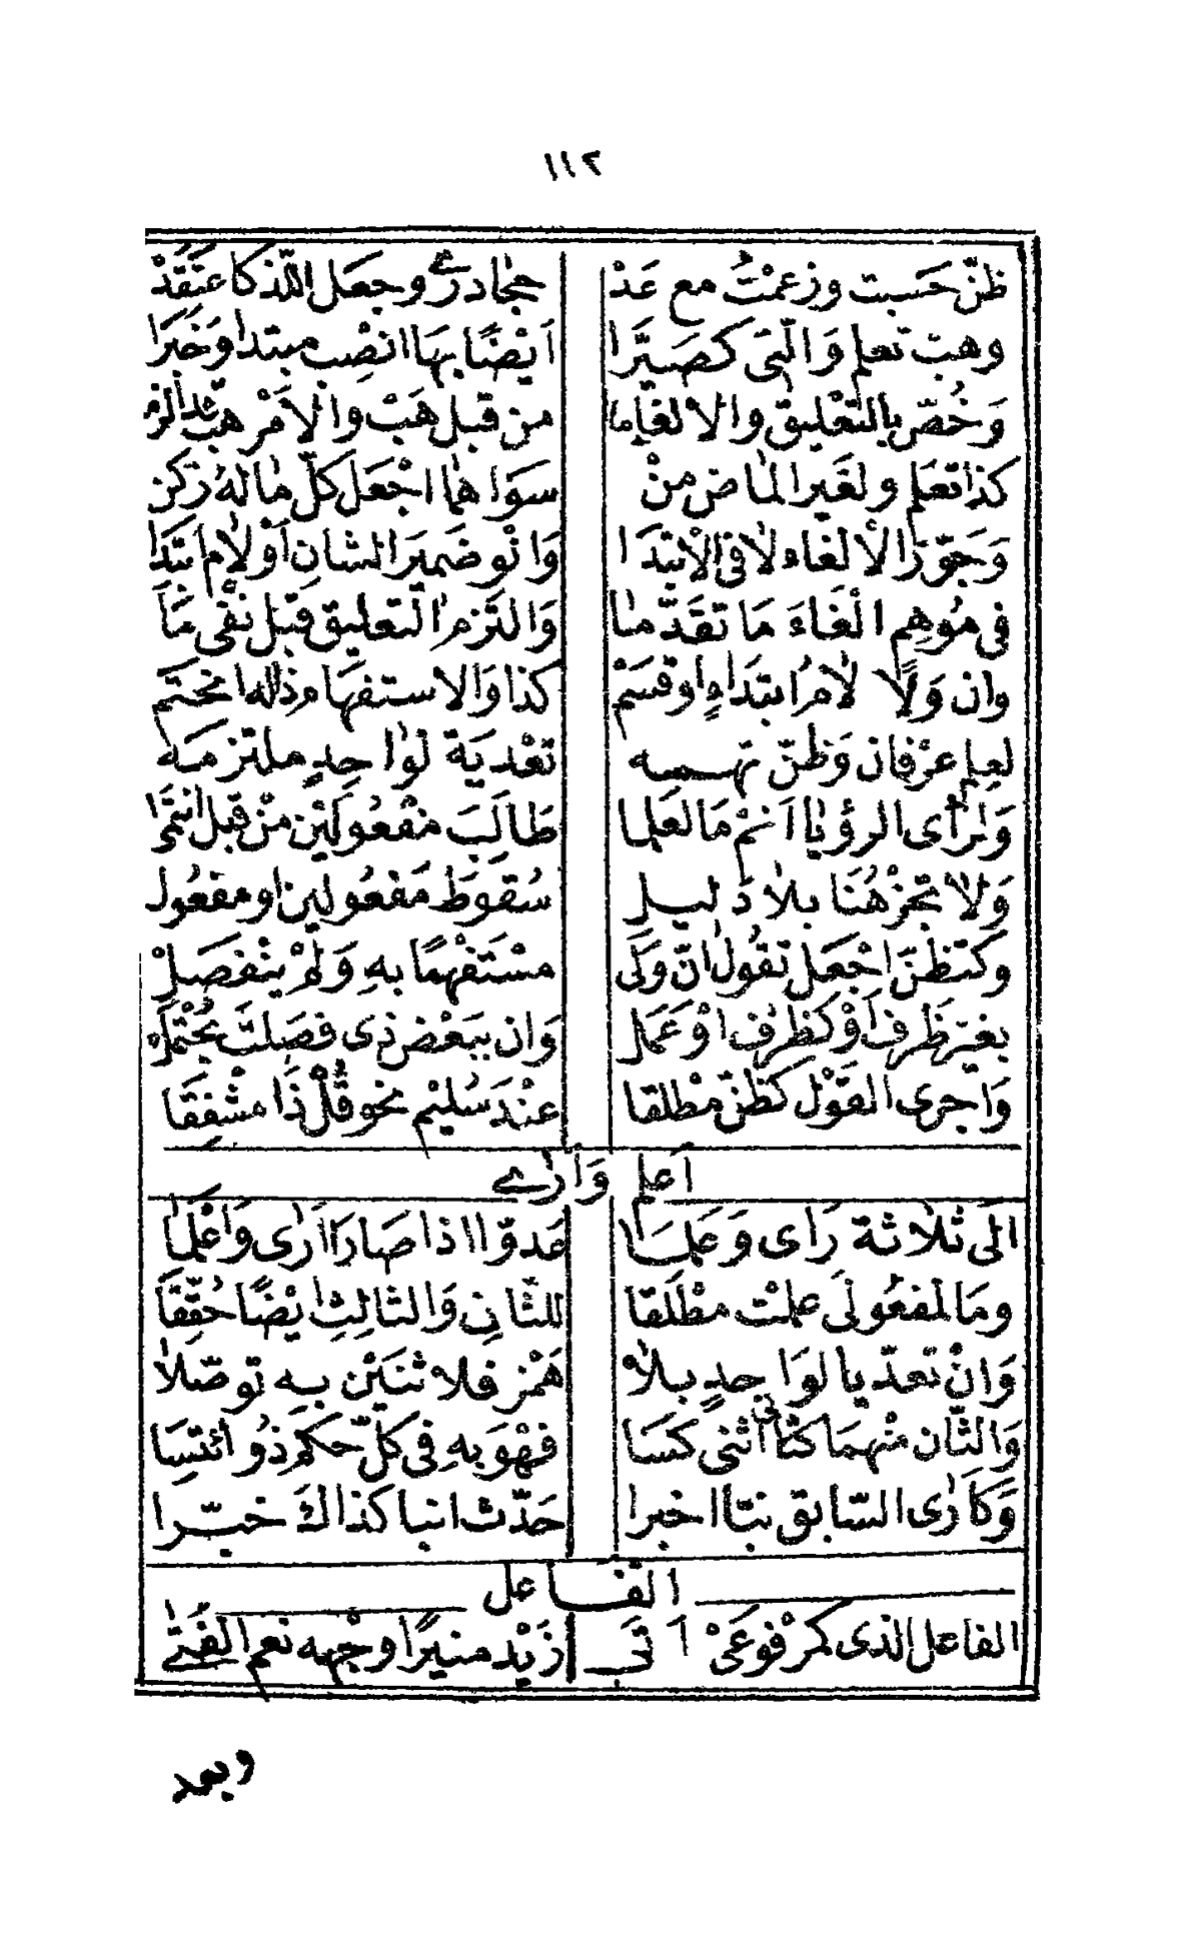 ١١٢
ظنّ حَسَبت وزعمْتُ مع عَدْ حجٰادرٰى وجعَل اللّذ كاعتَقَدْ
وهبْ تعلم وَالّتى كصَيَّرا اَيْضًا بهَا انصِب مبتدا وَخبَرَا
وَخُصّ بالتّعْليق والالغَاءِ ما من قبل هَبْ والاَمْر هبْ قد الزما
كذا تعَلم ولغَير المٰاض منْ سوَاهمٰا اجْعَل كلّ مٰالهُ زكن
وَجوّز الالغَاء لاٰ فى الاْبتدَا وَانْو ضميرَ الشان اَوْ لاٰم ابتدَا
فى مُوهِم الْغَاءَ مَا تقَدّمٰا وَالتزم التّعليق قبْل نفْى مَا
وان وَلاٰ لاٰمُ ابتدَاءٍ اوقسَمْ كذا وَالاستفهَام ذاله انحتَم
لعِلم عرْفان وَظنّ تهمه تعْديَة لوٰاحِدٍ ملتزمه
وَلرَأى الرؤيٰا اَنمْ مَالعَلما طَالَبَ مفْعُولَيْن منْ قبل انتمٰى
وَلاٰ تجزْ هُنَا بلاٰ دَليل سُقوطَ مَفعُولين او مفعُول
وكتظنّ اجْعَل تقُولُ انّ وَلَى مسْتَفْهمًا بهِ وَلمْ ينْفصَلْ
بغيَر ظَرف اَوْ كَظرْف اوْ عَمَل وَان ببَعْض ذى فصَلتَ يُحْتمَلْ
وَاجرى القوْل كَظنّ مطْلقا عنْدَ سُليْم نحوقُلْ ذَا مشْفِقَا
اَعلم وَارٰى
الَى ثلاٰثة رَاٰى وَعَلمَا عَدوّا اذا صَارَا اَرٰى وَاعْلَمَا
ومَا لمفعُولَى علمْت مطْلَقا للثّانِى وَالثالِثِ ايْضًا حُقّقَا
وَانْ تعدّيا لوَاحِدٍ بلاٰ هَمْز فلاثنَيْن بِهِ توصّلاٰ
وَالثّان منْهمَا كثانى اثنى كسَا فهْوَ بهِ فى كلّ حكم ذُو ائتسَا
وَكاَرٰى السّابق نبّا اخبرا حَدّث انبا كذاكَ خبّرا
الفَاعل
الفاعل الذى كمرْفوعَىْ اَتَى زَيْد منيرًا وجْهه نعم الفَتٰى
وبعد